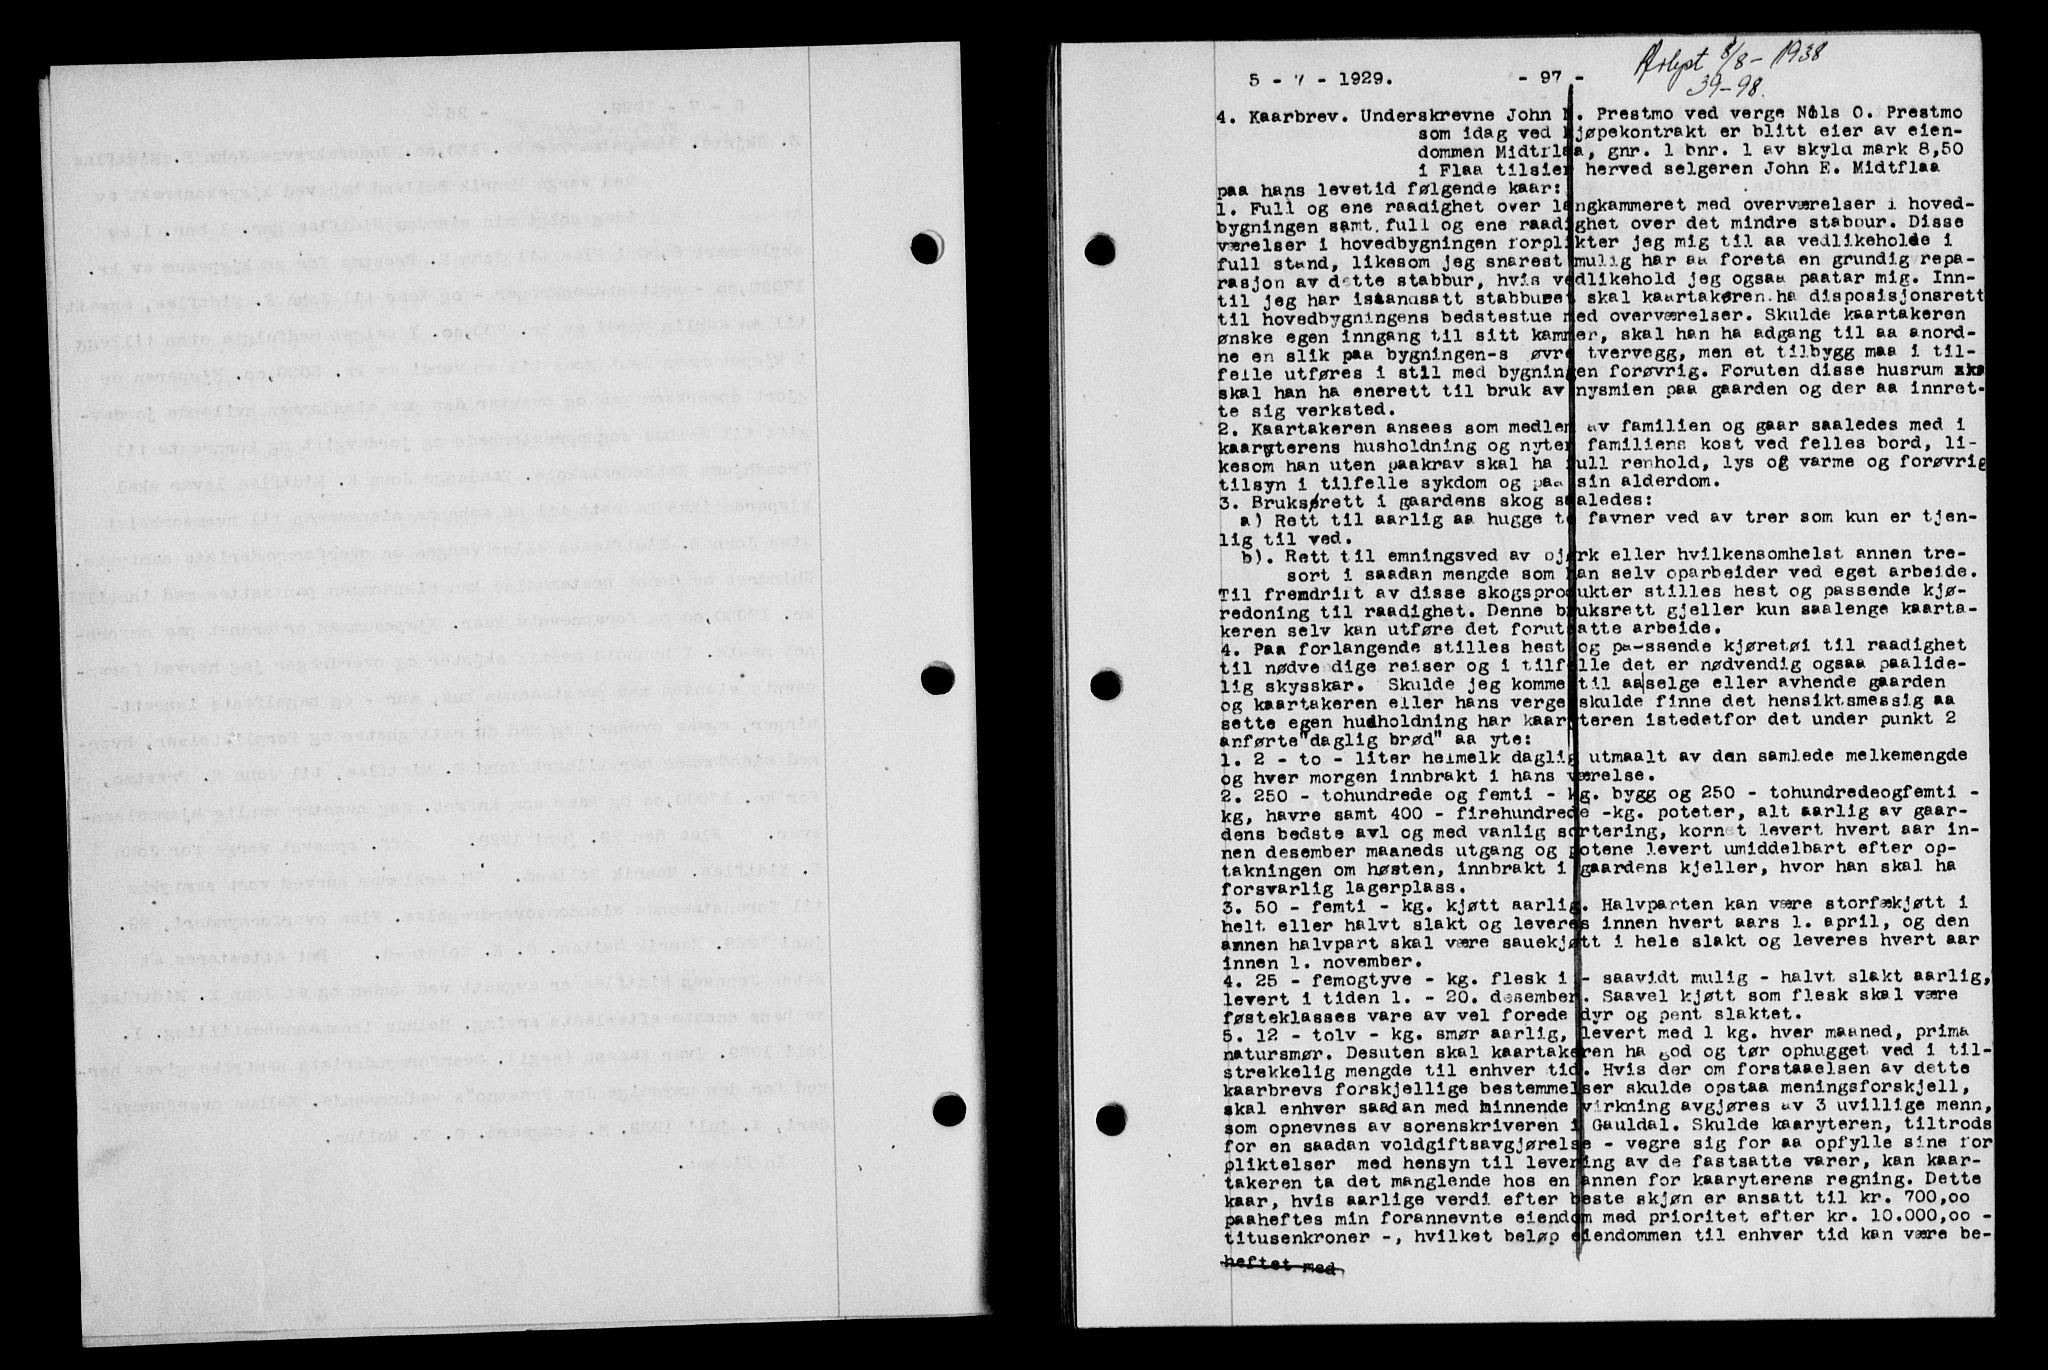 Avlyst 8/8 - 1938
39-98.
5 - 7 - 1929. - 97 -
4. Kaarbrev. Underskrevne John E. Prestmo ved verge Nils O. Prestmo
som idag ved kjøpekontrakt er blitt eier av eien-
dommen Midtflaa, gnr. 1 bnr. 1 av skyld mark 8,50
i Flaa tilsier herved selgeren John E. Midtflaa
paa hans levetid følgende kaar:
1. Full og ene raadighet over langkammeret med overværelser i hoved-
bygningen samt full og ene raadighet over det mindre stabbur. Disse
værelser i hovedbygningen forplikter jeg mig til aa vedlikeholde i
full stand, likesom jeg snarest mulig har aa foreta en grundig repa-
rasjon av dette stabbur, hvis vedlikehold jeg ogsaa paatar mig. Inn-
til jeg har istandsatt stabburet skal kaartakøren.ha disposisjonsrett
til hovedbygningens bedstestue med overværelser. Skulde kaartakeren
ønske egen inngang til sitt kammer, skal han ha adgang til aa anord-
ne en slik paa bygningen-s øvre tvervegg, men et tilbygg maa i til-
felle utføres i stil med bygningen forøvrig. Foruten disse husrum ska
skal han ha enerett til bruk av nysmien paa gaarden og der aa innret-
te sig verksted.
2. Kaartakeren ansees som medlem av familien og gaar saaledes med i
kaaryterens husholdning og nyter familiens kost ved felles bord, li-
kesom han uten paakrav skal ha full renhold, lys og varme og forøvrig
tilsyn i tilfelle sykdom og paa sin alderdom.
3. Bruksørett i gaardens skog saaledes:
a) Rett til aarlig aa hugge to favner ved av trer som kun er tjen-
lig til ved.
b). Rett til emningsved av bjerk eller hvilkensomhelst annen tre-
sort i saadan mengde som han selv oparbeider ved eget arbeide.
Til fremdrift av disse skogsprodukter stilles hest og passende kjø-
redoning til raadighet. Denne bruksrett gjeller kun saalenge kaarta-
keren selv kan utføre det forutsatte arbeide.
4. Paa forlangende stilles hest og pa-ssende kjøretøi til raadighet
til nødve dige reiser og i tilfelle det er nødvendig ogsaa paalide-
lig skysskar. Skulde jeg komme til aa selge eller avhende gaarden
og kaartakeren eller hans verge skulde finne det hensiktsmessig aa
sette egen hudholdning har kaaryteren istedetfor det under punkt 2
anførte "daglig brød" aa yte:
1. 2 - to - liter heimelk daglig utmaalt av den samlede melkemengde
og hver morgen innbrakt i hans værelse.
2. 250 - tohundrede og femti - kg. bygg og 250 - tohundredeogfemti -
kg, havre samt 400 - firehundrede -kg. poteter, alt aarlig av gaar-
dens bedste avl og med vanlig sortering, kornet levert hvert aar in-
nen desember maaneds utgang og potene levert umiddelbart efter op-
takningen om høsten, innbrakt i gaardens kjeller, hvor han skal ha
forsvarlig lagerplass.
3. 50 - femti - kg. kjøtt aarlig. Halvparten kan være storfækjøtt i
helt eller halvt slakt og leveres innen hvert aars 1. april, og den
annen halvpart skal være sauekjøtt i hele slakt og leveres hvert aar
innen 1. november.
4. 25 - femogtyve - kg. flesk i - saavidt mulig - halvt slakt aarlig,
levert i tiden 1. - 20. desember. Saavel kjøtt som flesk skal være
føsteklasses vare av vel forede dyr og pent slaktet.
5. 12 - tolv - kg. smør aarlig, levert med 1 kg. hver maaned, prima
natursmør. Desuten skal kaartakeren ha god og tør ophugget ved i til-
strekkelig mengde til enhver tid. Hvis der om forstaaelsen av dette
kaarbrevs forskjellige bestemmelser skulde opstaa meningsforskjell,
skal enhver saadan med binnende virkning avgjøres av 3 uvillige menn,
som opnevnes av sorenskriveren i Gauldal. Skulde kaaryteren, tiltrods
for en saadan voldgiftsavgjørelse - vegre sig for aa opfylle sine for
pliktelser med hensyn til levering av de fastsatte varer, kan kaar-
takeren ta det manglende hos en annen for kaaryterens regning. Dette
kaar, hvis aarlige verdi efter beste skjøn er ansatt til kr. 700,oo
paaheftes min forannevnte eiendom med prioritet efter kr. 10.000,oo -
titusenkroner -, hvilket beløp eiendommen til enhver tid kan være be-
heftet med